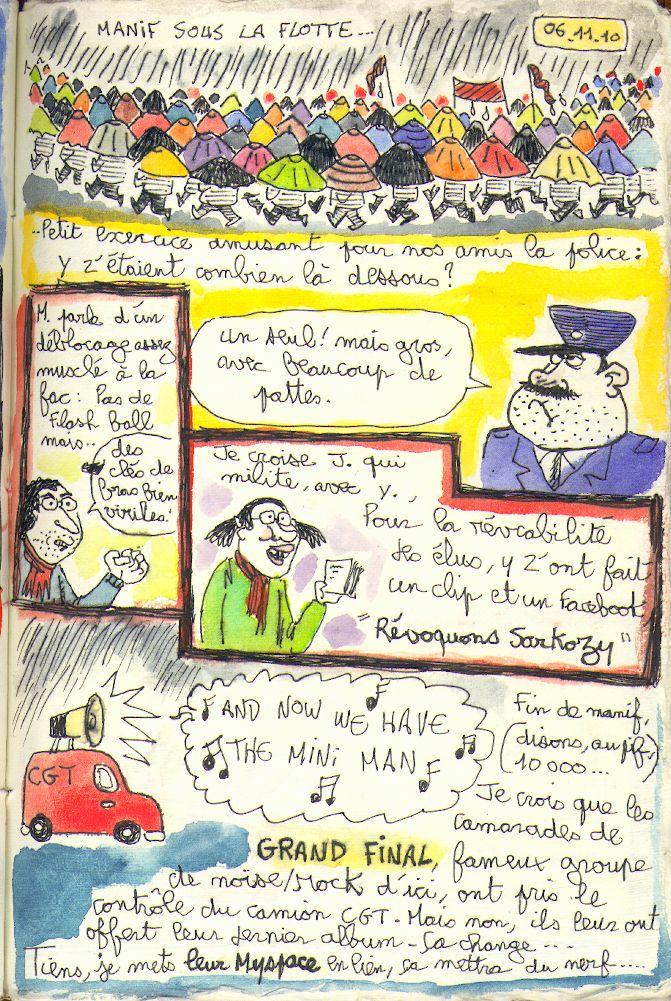 MANIF SOUS LA FLOTTE...
06_11_10
..Petit exercice amusant pour nos amis la police :
y z'étaient combien là dessous ?
M. parle d'un
déblocage assez
musclé à la
fac : Pas de
Flash Ball
mais..
des
clés de
bras bien
viriles !
un seul ! mais gros,
avec beaucoup de
pattes.
Je croise J. qui
milite, avec Y.,
Pour la révocabilité
des élus, y z'ont fait
un clip et un Facebook
"Révoquons Sarkozy"
CGT
AND NOW WE HAVE
THE MINI MAN
Fin de manif,
(disons, au pif,
10 000...)
Je crois que les
camarades de
GRAND FINAL, fameux groupe
de noise/rock d'ici, ont pris le
contrôle du camion CGT - Mais non, ils leur ont
offert leur dernier album - ça change....
Tiens, je mets leur Myspace en lien, ça mettra du nerf.....